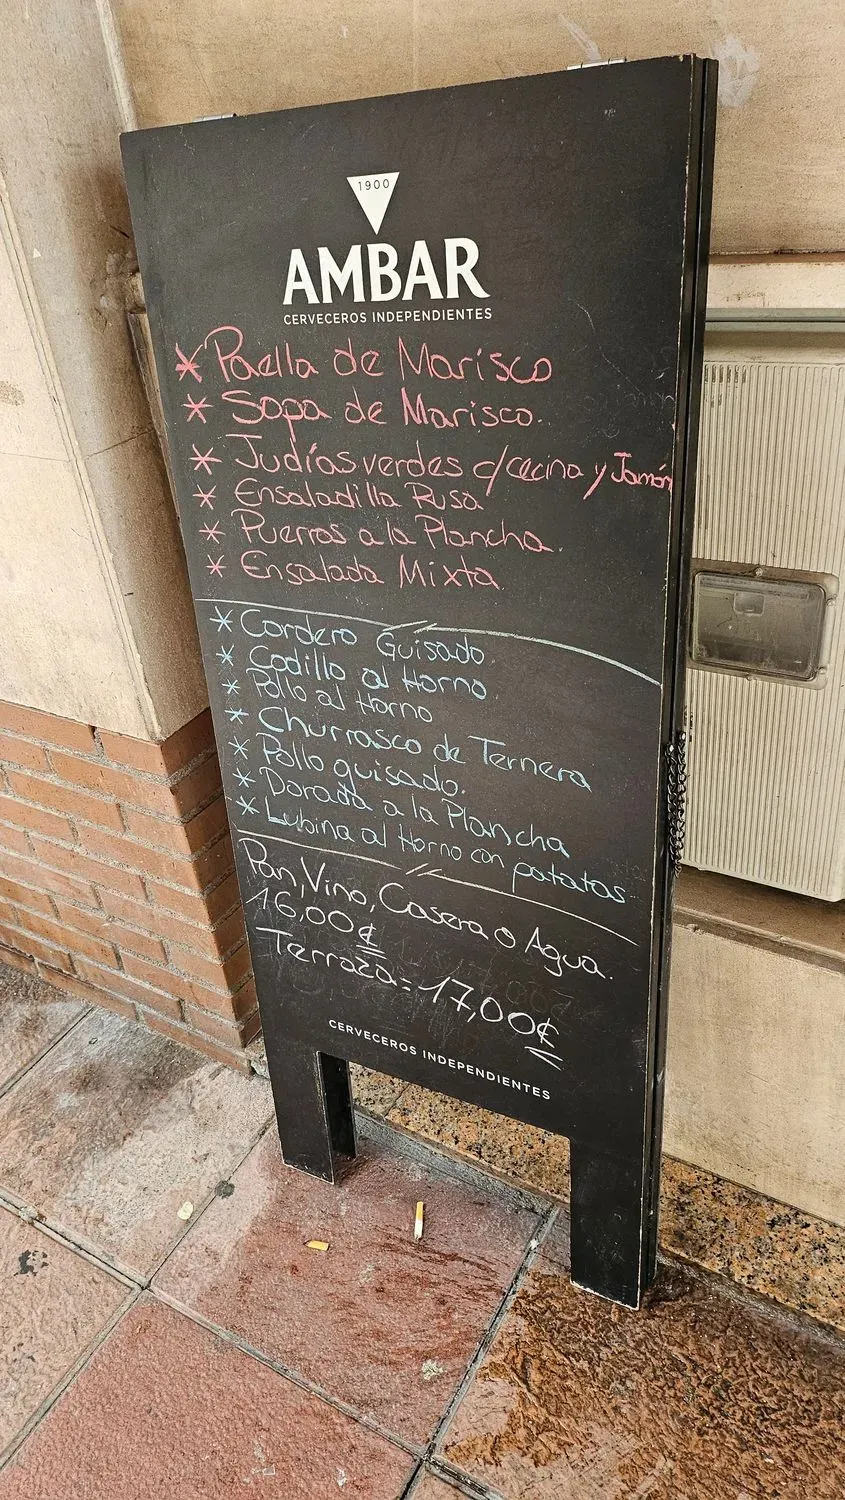 1900
AMBAR
CERVECEROS INDEPENDIENTES
* Paella de Marisco
* Sopa de Marisco.
* Judías verdes c/cecina y Jamón
* Ensaladilla Rusa
* Puerros a la Plancha.
* Ensalada Mixta
* Cordero Guisado.
* Codillo al Horno
* Pollo al Horno
* Churrasco de Ternera
* Pollo guisado.
* Dorada a la Plancha
* Lubina al Horno con patatas
Pan, Vino, Casera o Agua.
16,00€
Terraza = 17,00€
CERVECEROS INDEPENDIENTES